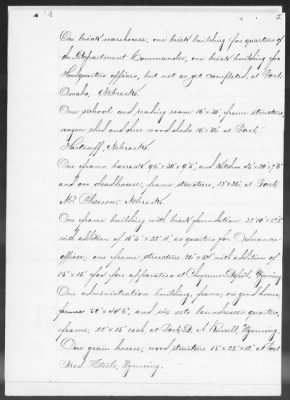 2
One brick warehouse, one brick building for quarters of
the Department Commander, one brick building for
Headquarters offices, but not as yet completed, at Fort
Omaha, Nebraska.
One school and reading room 16' x 20', frame structure,
wagon shed and three wood sheds 16' x 32' at Fort
Hartsuff, Nebraska.
One frame barrack and kitchen
and one deadhouse, frame structure, at Fort
McPherson, Nebraska.
One frame building with brick foundation
with addition of as quarters for Ordnance
officer, one frame structure 26' x 34' with addition of
15' x 15' for fire apparatus at Cheyenne Depot, Wyoming.
One administration building, frame, one guard house,
frame and six sets laundresses quarters,
frame, 22' x 15' each, at Fort D. A. Russell, Wyoming.
One grain house, wood structure at Fort
Fred. Steele, Wyoming.